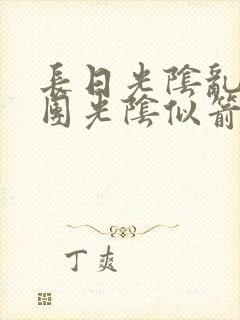 長日光陰亂
團光陰似箭
丁爽